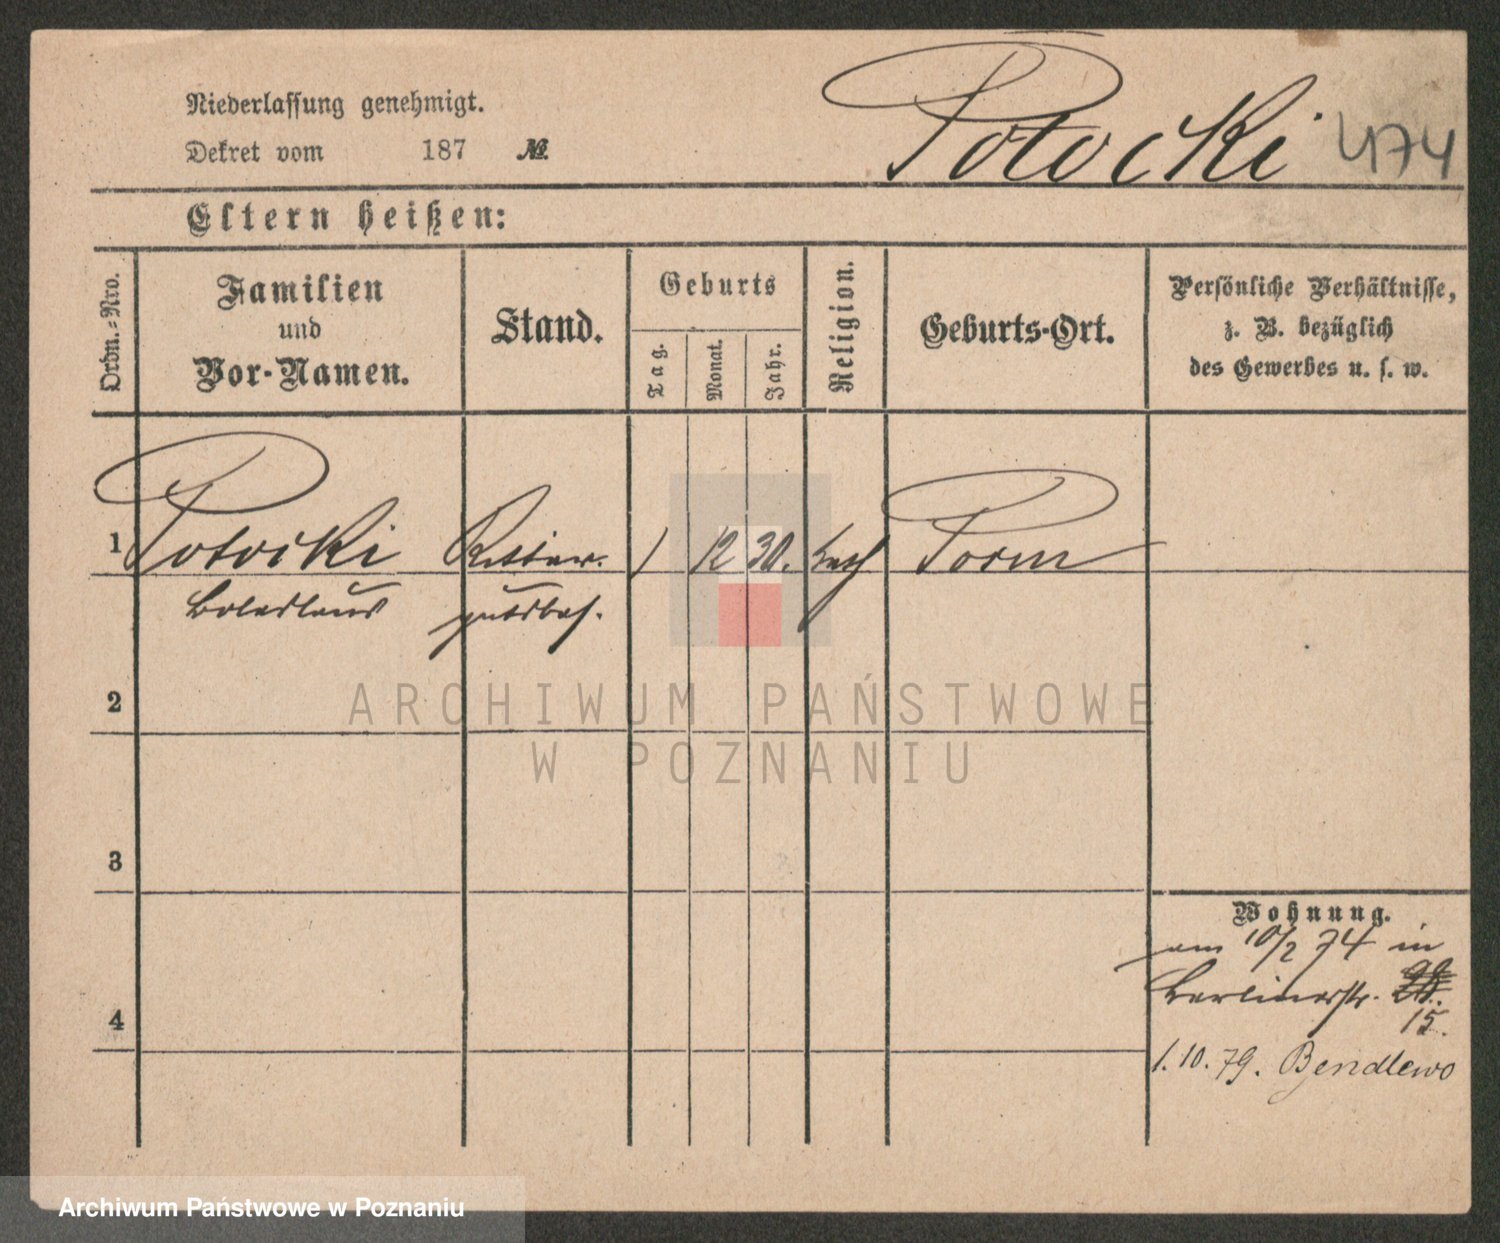 Niederlassung genehmigt.
Potocki 474
Dekret vom 187 №
Eltern heißen:
Ordn.-Nro.
Familien und Vor-Namen.
Stand.
Geburts
Tag.
Monat.
Jahr.
Religion.
Geburts-Ort.
Persönliche Verhältnisse,
z. B. bezüglich
des Gewerbes u. s. w.
1 Potocki Ritter- 1 12 30. kath
Boleslaus gutsbes.
2
ARCHIWUM PAŃSTWOWE
W POZNANIU
3
Wohnung.
am 10/2 74 in
Berlinerstr.
15.
4
1. 10. 79. Bendlewo
Archiwum Państwowe w Poznaniu